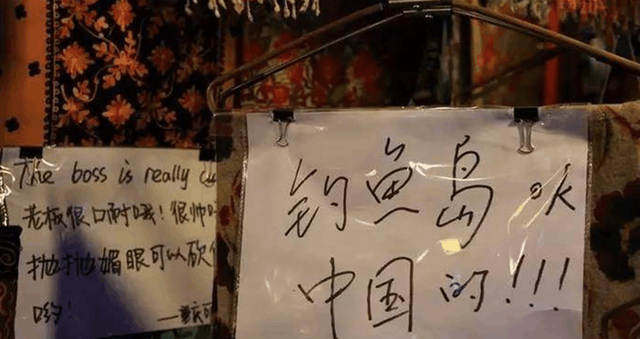 The boss is really
老板很口耐哦！很帅
抛抛媚眼可以砍
哟！
钓鱼岛 ok
中国的!!!